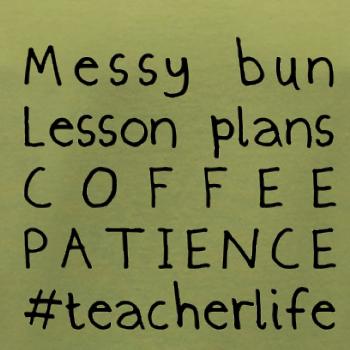 Messy bun
Lesson plans
COFFEE
PATIENCE
#teacherlife